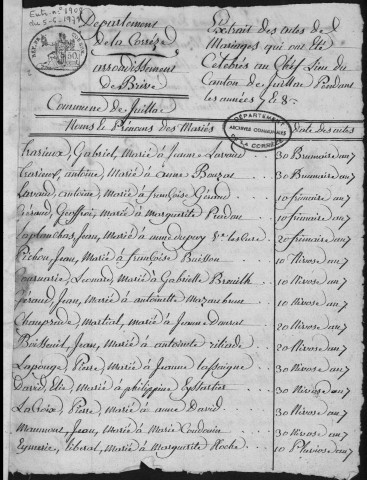 Entr. n° 1908
du 5-6-1971
Département
de la Corrèze
arrondissement
de Brive
Commune de Juillac
Extrait des actes de
Mariages qui ont été
Célébrés au Chef Lieu de
Canton de Juillac Pendant
les années 7 & 8
Noms et Prénoms des Mariés
Date des actes
DÉPARTEMENT
ARCHIVES COMMUNALES
DE LA CORRÈZE
Trarieux, Gabriel, Marié à Jeanne Lavaud 30 Brumaire an 7
Trarieux, antoine, Marié à anne Bouzat 30 Brumaire an 7
Lavaud, antoine, Marié à françoise Géraud 10 frimaire an 7
Géraud, Geoffroi, Marié à marguerite 10 frimaire an 7
Laplanchas, Jean, Marié à anne dupuy 20 frimaire an 7
Pichon, Jean, Marié à françoise Buisson 10 Nivose an 7
Léonard, Marié à Gabrielle 10 Nivose an 7
Géraud, Jean, Marié à antoinette 10 Nivose an 7
Martial, Marié à Jeanne 20 Nivose an 7
Boisseuil, Jean, Marié à antoinette 20 Nivose an 7
Lapouge, Pierre, Marié à Jeanne Lassaigne 30 Nivose an 7
David, Elie, Marié à philippine 30 Nivose an 7
Lacroix, Pierre, Marié à anne David 30 Nivose an 7
Jean, Marié à Marie 30 Nivose an 7
Eymerie, Liberal, Marié à Marguerite Roche 10 Pluviose an 7